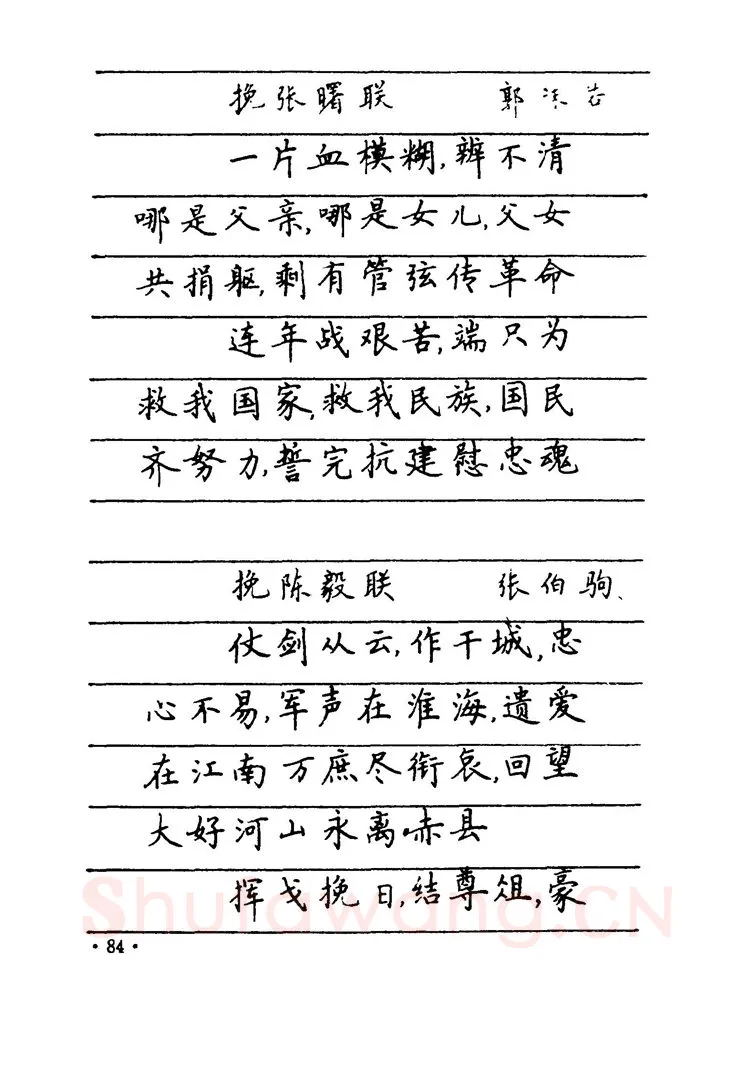 挽张曙联 郭沫若
一片血模糊,辨不清
哪是父亲,哪是女儿,父女
共捐躯,剩有管弦传革命
连年战艰苦,端只为
救我国家,救我民族,国民
齐努力,誓完抗建慰忠魂
挽陈毅联 张伯驹
仗剑从云,作干城,忠
心不易,军声在淮海,遗爱
在江南万庶尽衔哀,回望
大好河山永离赤县
挥戈挽日,结尊俎,豪
Shufawang.CN
·84·